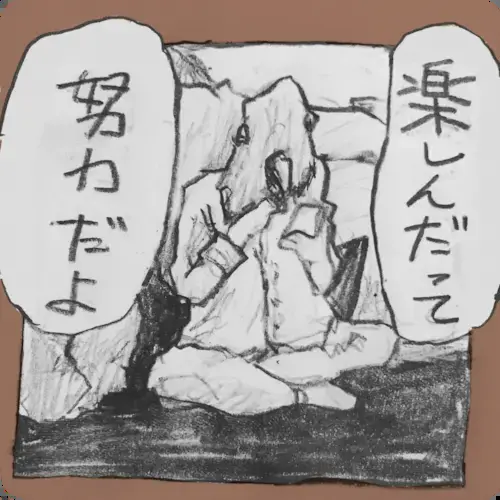 楽しんだって
努力だよ